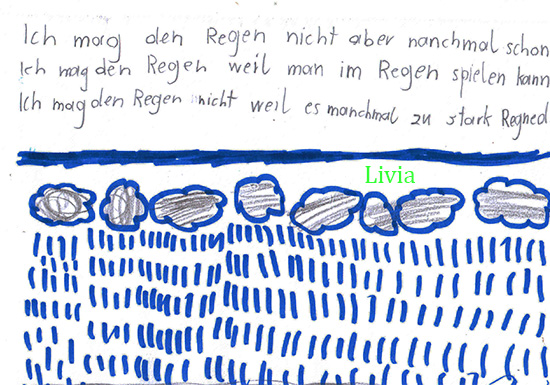 Ich mag den Regen nicht aber nanchmal schon
Ich mag den Regen weil man im Regen spielen kann
Ich mag den Regen nicht weil es manchmal zu stark Regned
Livia